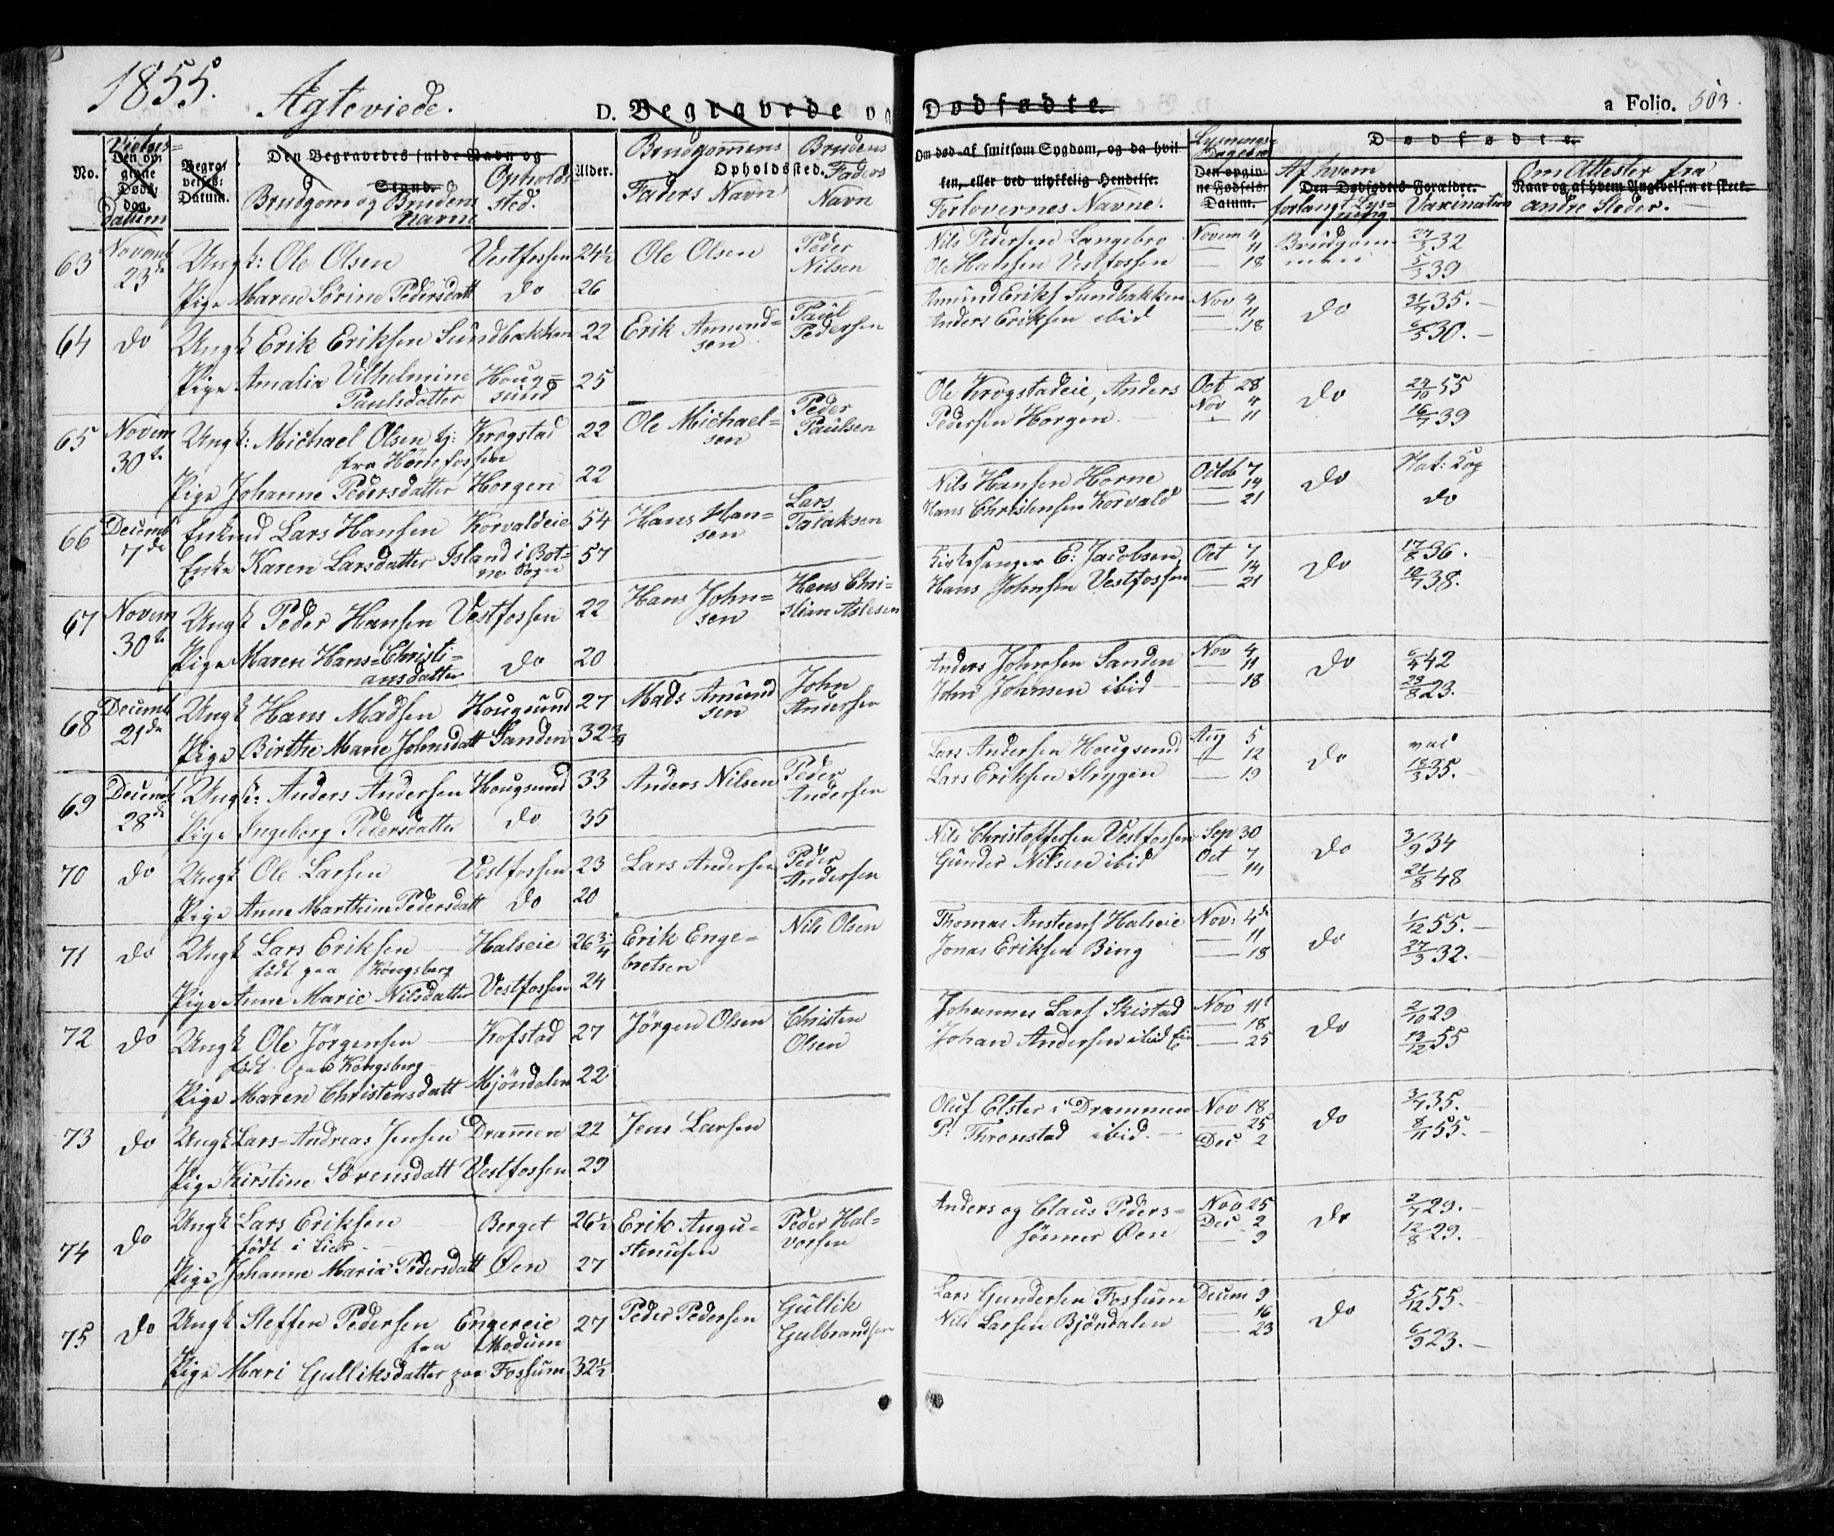 1855.
Agteviede.
D. Begravede og Dødfødte.
a Folio. 503.
No.
Vielses-
Den opgivne Døds-dag.
Datum
Begravelses-Datum.
Den Begravedes fulde Navn og Stand.
Brudgom og Brudens Navne
Opholdssted.
Alder.
Brudgommens Faders Navn
Opholdssted.
Brudens Faders Navn
Om død af smitsom Sygdom, og da hvilken, eller ved ulykkelig Hendelse.
Forlovernes Navne.
Lysnings-Dagene
Den opgivne Fødsels-Datum.
Dødfødte.
Af hvem forlangt Lysning
Den Dødfødtes Forældre.
Vaxination
Om Attester fra andre Steder.
Naar og af hvem Angivelsen er skeet.
63 Novemb 23de Ungk: Ole Olsen Vestfossen 24½ Ole Olsen Peder Nilsen
Pige Maren Sørine Pedersdatt do 26
Nils Pedersen Langebro Novem 4 Brudgommen 27/5 32
Ole Hansen Vestfossen 11 18 5/5 39
64 do Ungk Erik Eriksen Sundbakken 22 Erik Amundsen Paul Pedersen
Pige Amalia Vilhelmine Paulsdatter Hougsund 25
Amund Eriks Sundbakken Nov 4 do 31/7 35.
Anders Eriksen ibid 11 18 6/5 30.
65 Novem 30te Ungk: Michael Olsen tj: Krogstad 22 Ole Michaelsen Peder Paulsen
fra Hønefossen
Pige Johanne Pedersdatter Horgen 22
Ole Krogstadeie, Anders Oct 28 do 24/10 55
Pedersen Horgen Nov 4 11 16/7 39
66 Decemb 7de Enkemd Lars Hansen Korvaldeie 54 Hans Hansen Lars
Enke Karen Larsdatter Island i Botne Sogn 57
Nils Hansen Horne Octob 7 do Nat: Kop
Hans Christensen Korvald 14 21 do
67 Novem 30te Ungk Peder Hansen Vestfossen 22 Hans Johnsen Hans Christian Aslesen
Pige Maren Hans-Christiansdatter do 20
Kirkesanger E: Jacobsen Oct 7 do 17/8 36.
Hans Johnsen Vestfossen 14 21 10/7 38.
68 Decemb 21de Ungk Hans Madsen Hougsund 27 Mads Amundsen John Andersen
Pige Birthe Marie Johnsdatt Sanden 32¾
Anders Johnsen Sanden Nov 4 do 6/4 42
John Johnsen ibid 11 18 29/8 23.
69 Decemb 28de Ungk: Anders Andersen Hougsund 33 Anders Nilsen Peder Andersen
Pige Ingeborg Pedersdatter do 35
Lars Andersen Hougsund Aug 5 do vac
Lars Eriksen Strygen 12 19 18/3 35.
70 do Ungk Ole Larsen Vestfossen 23 Lars Andersen Peder Andersen
Pige Anne Marthine Pedersdatt do 20
Nils Christoffersen Vestfossen Sep 30 do 3/9 34
Gunder Nilsen ibid Oct 7 14 21/8 48
71 do Ungk Lars Eriksen Halseie 26¾ Erik Engebretsen Nils Olsen
født paa Kongsberg
Pige Anne Marie Nilsdatter Vestfossen 24
Thomas Anstens Halseie Nov: 4de do 1/12 55.
Jonas Eriksen Bing 11 18 27/3 32.
72 do Ungk Ole Jörgensen Kofstad 27 Jörgen Olsen Christen Olsen
født paa Kongsberg
Pige Maren Christensdatt Mjöndalen 22
Johannes Lars Skistad Nov 11 do 2/10 29
Johan Andersen ibid Eie 18 25 13/12 55
73 do Ungk Lars Andreas Jensen Drammen 22 Jens Larsen
Pige Kirstine Sörensdatt Vestfossen 29
Oluf Elster i Drammen Nov 18 do 3/7 35.
P: Thronstad ibid. 25 Dec 2 8/11 55.
74 do Ungk Lars Eriksen Berget 26½ Erik Augustinusen Peder Halvorsen
født i Lier
Pige Johanne Maria Pedersdatt Øen 27
Anders og Claus Peders- Nov 25 do 2/7 29.
sönner Øen Dec 2 9 12/8 29.
75 do Ungk Steffen Pedersen Engereie 27 Peder Pedersen Gullik Gulbrandsen
fra Modum
Pige Mari Gulliksdatter paa Fossum 32½
Lars Gundersen Fossum Decem 9 do 5/12 55.
Nils Larsen Bjöndalen 16 23 6/9 23.